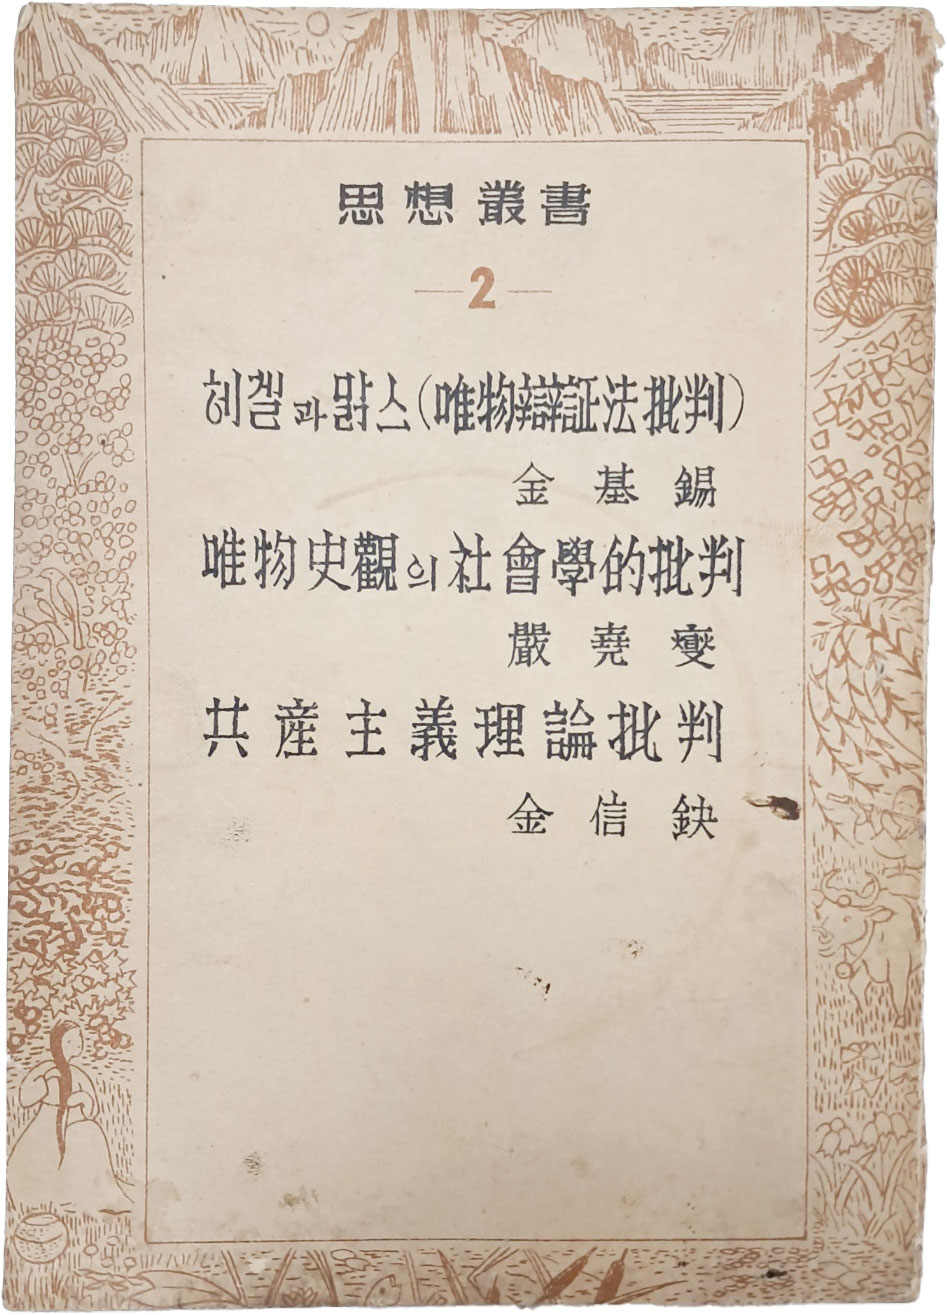 思想叢書
2
헤겔과 맑스(唯物辯証法批判)
金基錫
唯物史觀의 社會學的批判
嚴堯燮
共産主義理論批判
金信鉄